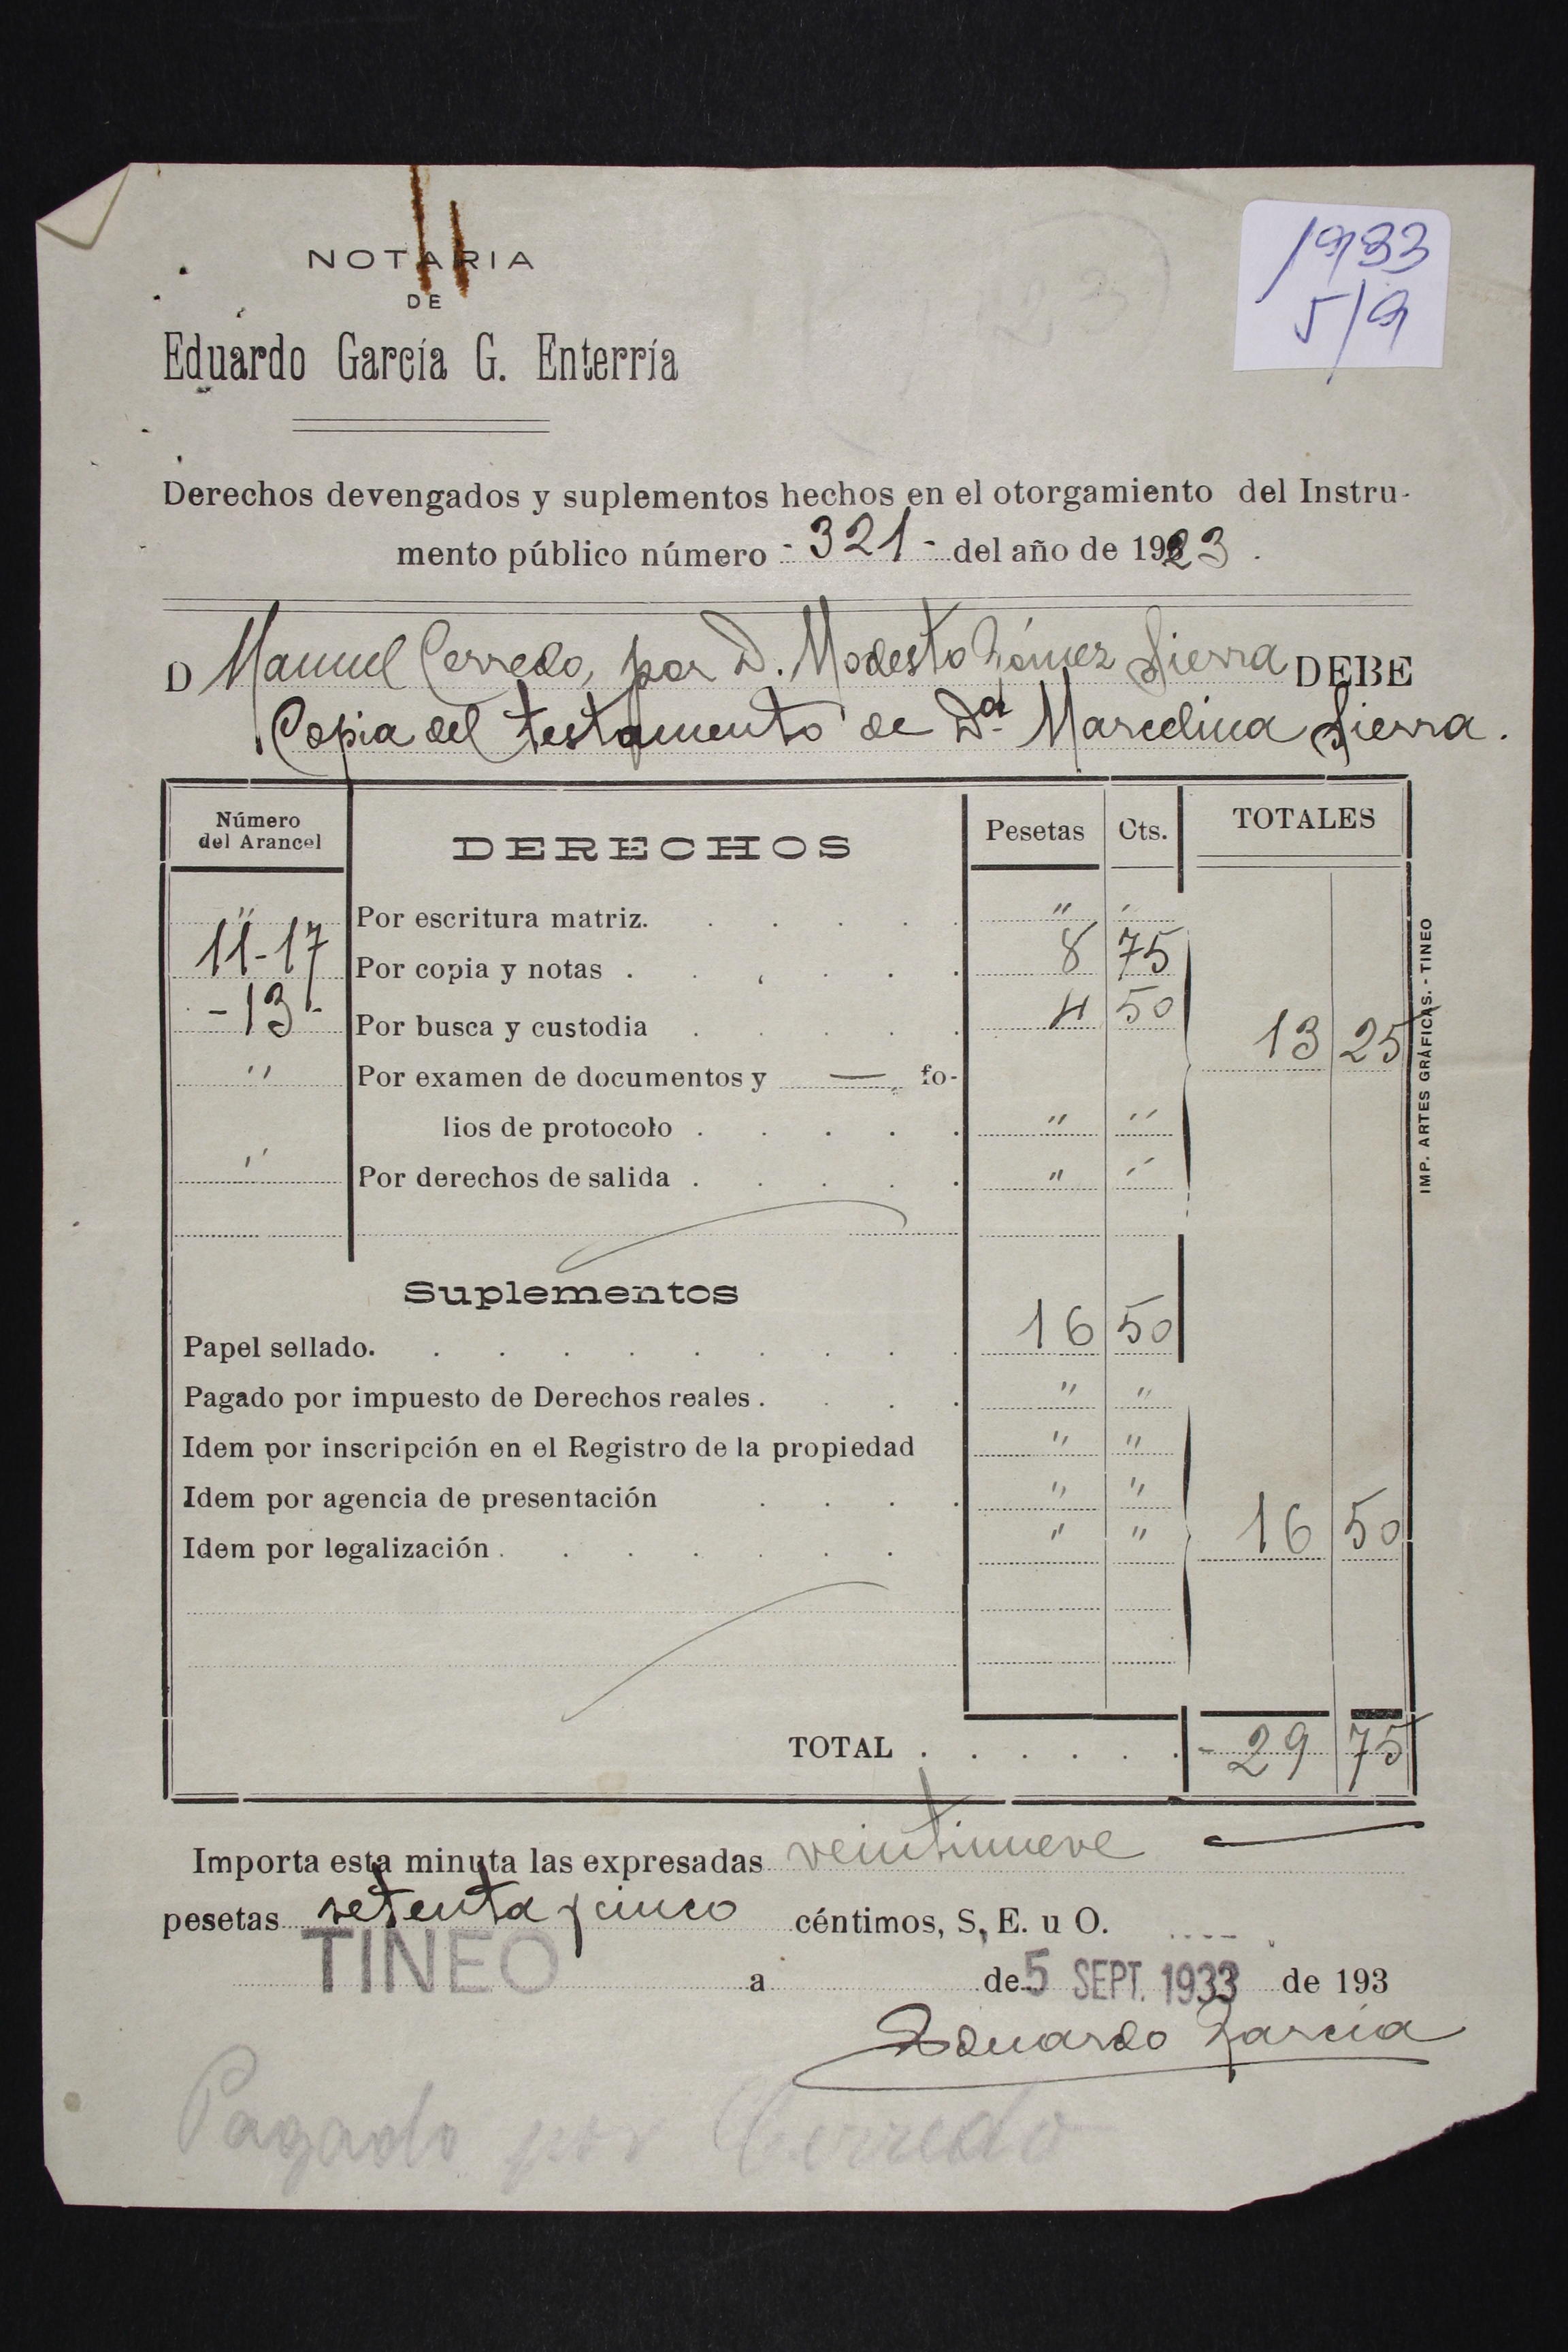 1933
5/9
NOTARIA
DE
Eduardo García G. Enterría
Derechos devengados y suplementos hechos en el otorgamiento del Instru-
mento público número - 321 - del año de 1923.
D Manuel Cerredo, por D. Modesto Gómez Sierra DEBE
Copia del testamento de Dª Marcelina Sierra.
Número del Arancel DERECHOS Pesetas Cts. TOTALES
" Por escritura matriz. " "
11-17 Por copia y notas 8 75
-13- Por busca y custodia 4 50 13 25
" Por examen de documentos y — fo-
lios de protocolo " "
" Por derechos de salida " "
Suplementos
Papel sellado. 16 50
Pagado por impuesto de Derechos reales. " "
Idem por inscripción en el Registro de la propiedad " "
Idem por agencia de presentación " "
Idem por legalización. " " 16 50
TOTAL - 29 75
Importa esta minuta las expresadas veintinueve
pesetas setenta y cinco céntimos, S. E. u O.
TINEO a de 5 SEPT. 1933 de 193
Eduardo García
Pagado por Cerredo
IMP. ARTES GRÁFICAS. - TINEO